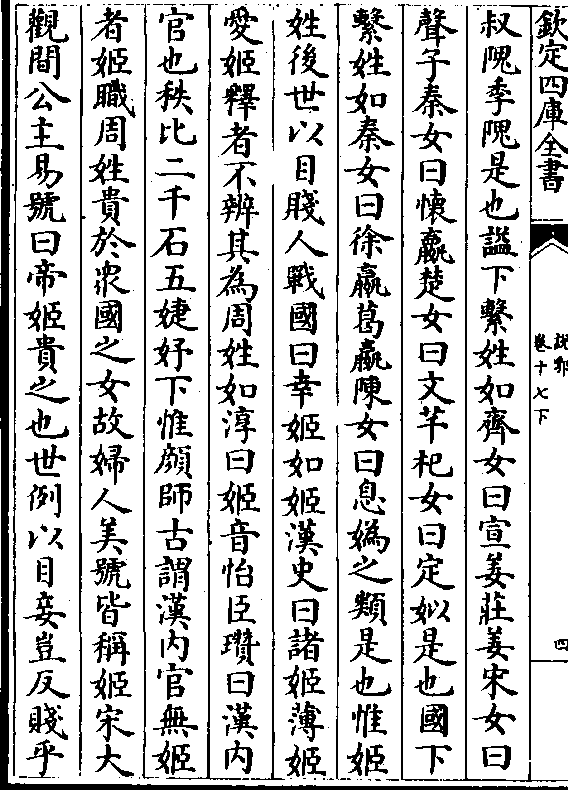 欽定四庫全書
說郛
卷十七下
四
叔隗季隗是也諡下繫姓如齊女曰宣姜莊姜宋女曰
聲子秦女曰懷嬴楚女曰文芊杞女曰定姒是也國下
繫姓如秦女曰徐嬴葛嬴陳女曰息媯之類是也惟姬
姓後世以目賤人戰國曰幸姬如姬漢史曰諸姬薄姬
愛姬釋者不辨其為周姓如淳曰姬音怡臣瓚曰漢内
官也秩比二千石五婕妤下惟顔師古謂漢内官無姬
者姬職周姓貴於衆國之女故婦人美號皆稱姬宋大
觀間公主易號曰帝姬貴之也世例以目妾豈反賤乎